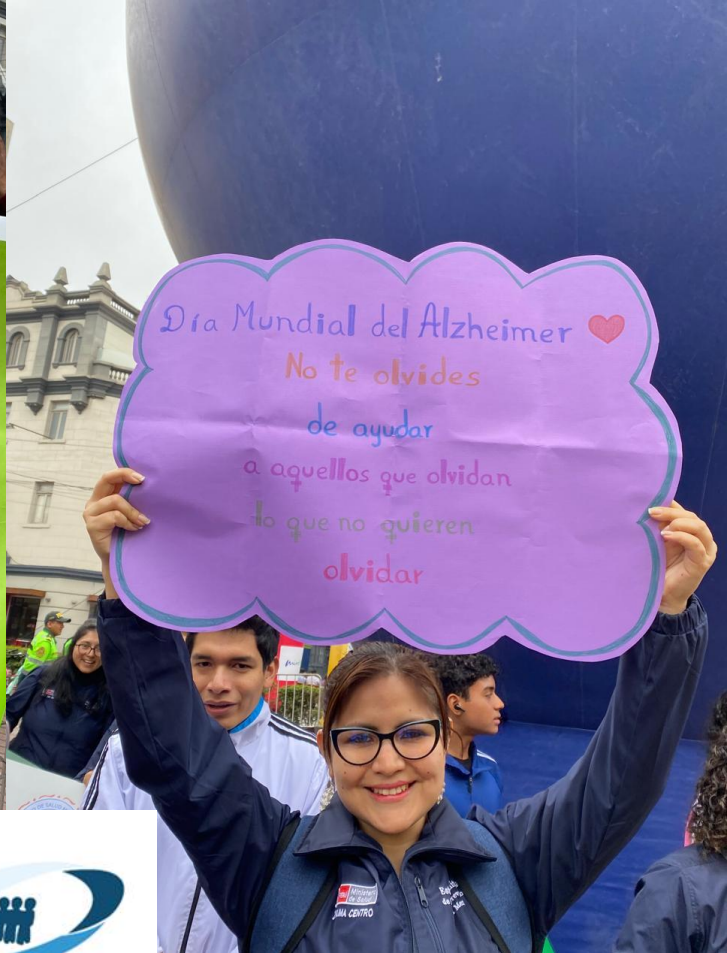 Día Mundial del Alzheimer
No te olvides
de ayudar
a aquellos que olvidan
lo que no quieren
olvidar
Ministerio
de Salud
LIMA CENTRO